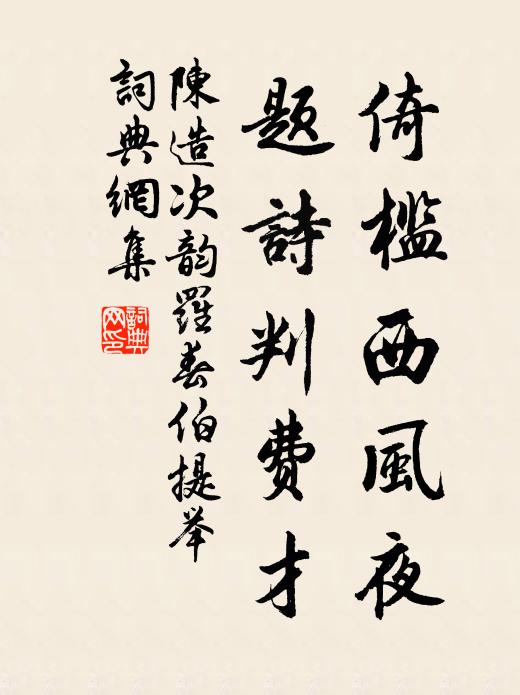 倚檻西風夜
題詩判費才
陳造次韵羅春伯提举
詞典網集
詞典网印